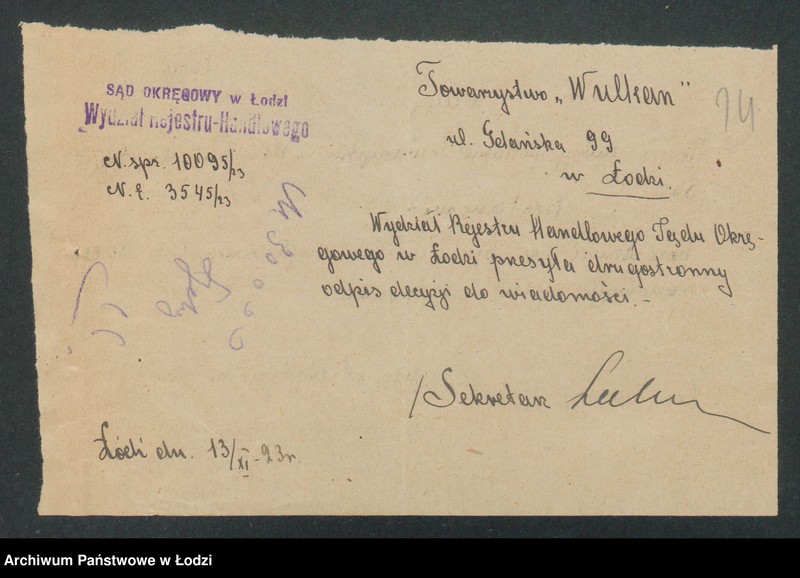 SĄD OKRĘGOWY w Łodzi
Wydział Rejestru-Handlowego
N. spr. 10095/23
N. E. 3545/23
Towarzystwo „Wulkan”
94
ul. Gdańska 99
w Łodzi.
Wydział Rejestru Handlowego Sądu Okrę-
gowego w Łodzi przesyła drugostronny
odpis decyzji do wiadomości.-
/Sekretarz
Łódź dn. 13/XI-23r.
Archiwum Państwowe w Łodzi